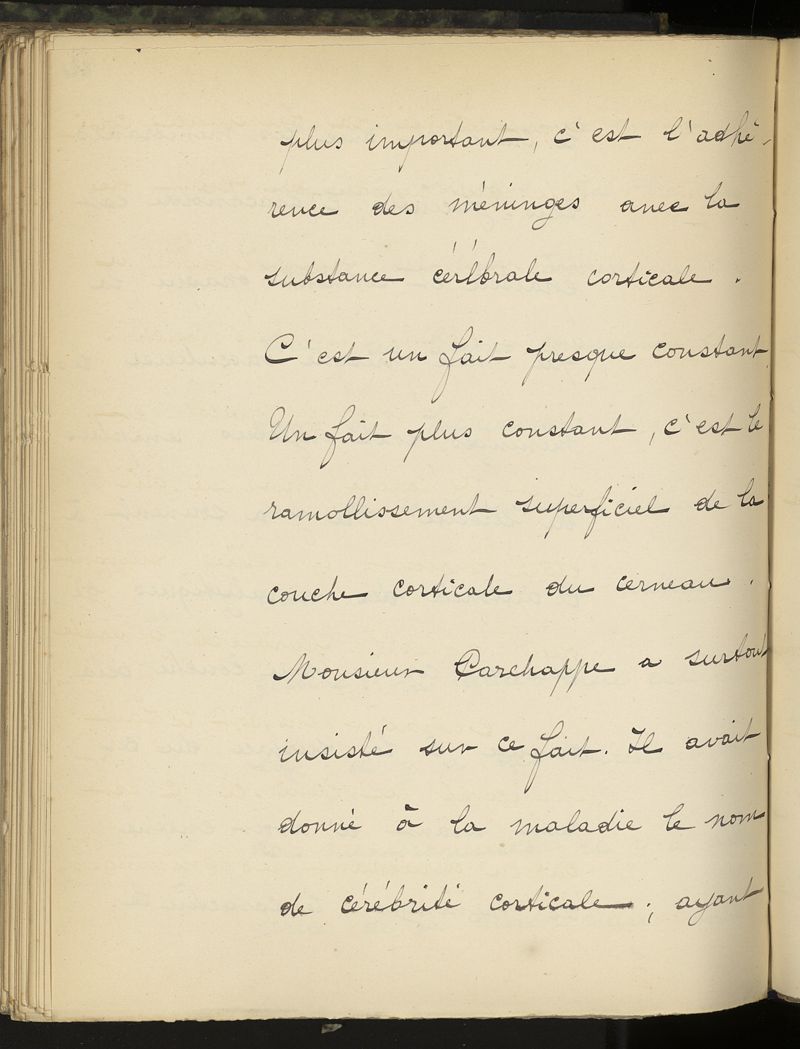 plus important, c'est l'adhé-
rence des méninges avec la
substance cérébrale corticale.
C'est un fait presque constant.
Un fait plus constant, c'est le
ramollissement superficiel de la
couche corticale du cerveau.
Monsieur Parchappe a surtout
insisté sur ce fait. Il avait
donné à la maladie le nom
de cérébrité corticale ; ayant